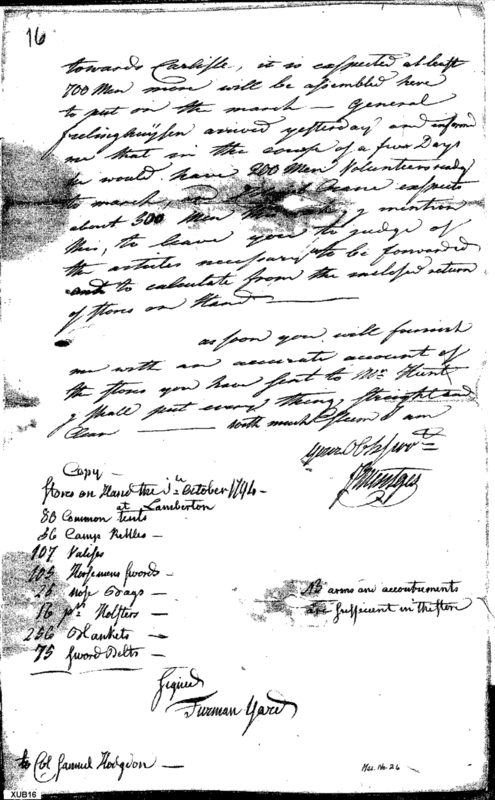 16
towards Carlisle, it is expected at least
700 Men more will be assembled here
to put on the march — General
freelinghuÿsen arrived yesterday and informd
me that in the course of a few Days
he would have 800 Men Volunteers ready
to march, and Crane expects
about 500 Men I mention
this, to leave you to judge of
the articles necessary to be forwarded
and to calculate from the enclosed return
of stores on Hand —
as soon you will furnish
me with an accurate account of
the stores you have sent to Mr. Hunt
I shall put every thing straight and
Clear — with much Esteem I am
your Ob Servt
JMentges
Copy —
Stores on Hand the October 1794 —
at Lamberton
80 Common tents
36 Camp Kettles —
107 Valises
105 Horsemens Swords —
Nose Bags —
16 prs Holsters —
256 Blankets —
75 Sword Belts —
NB arms and accoutrements
are sufficient in the store
Signed
Furman Yard
to Col Samuel Hodgdon —
No. 26
XUB16